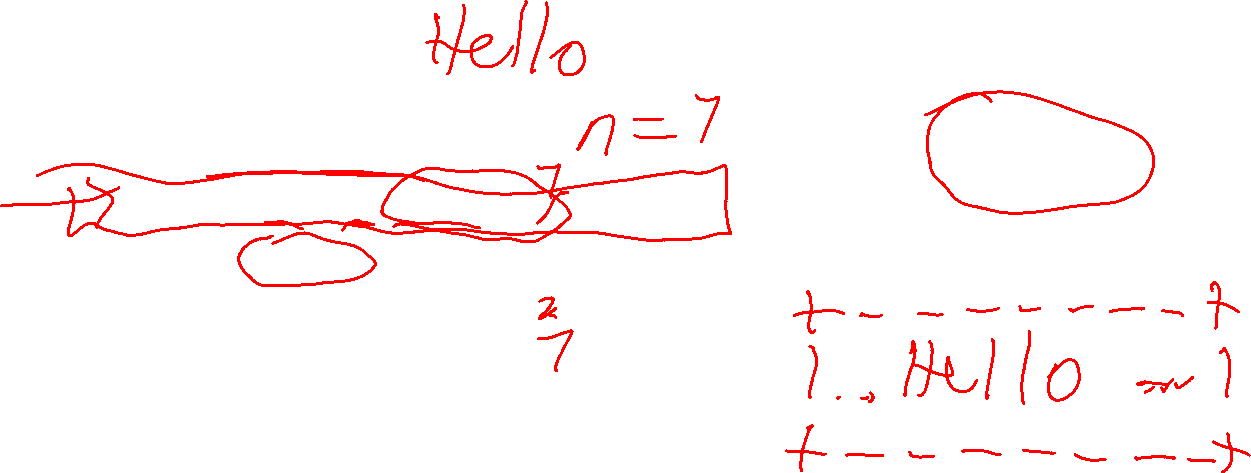 Hello
n = 7
7
2
7
+ - - - - - - - +
| .. Hello ~ |
+ - - - - - - - +